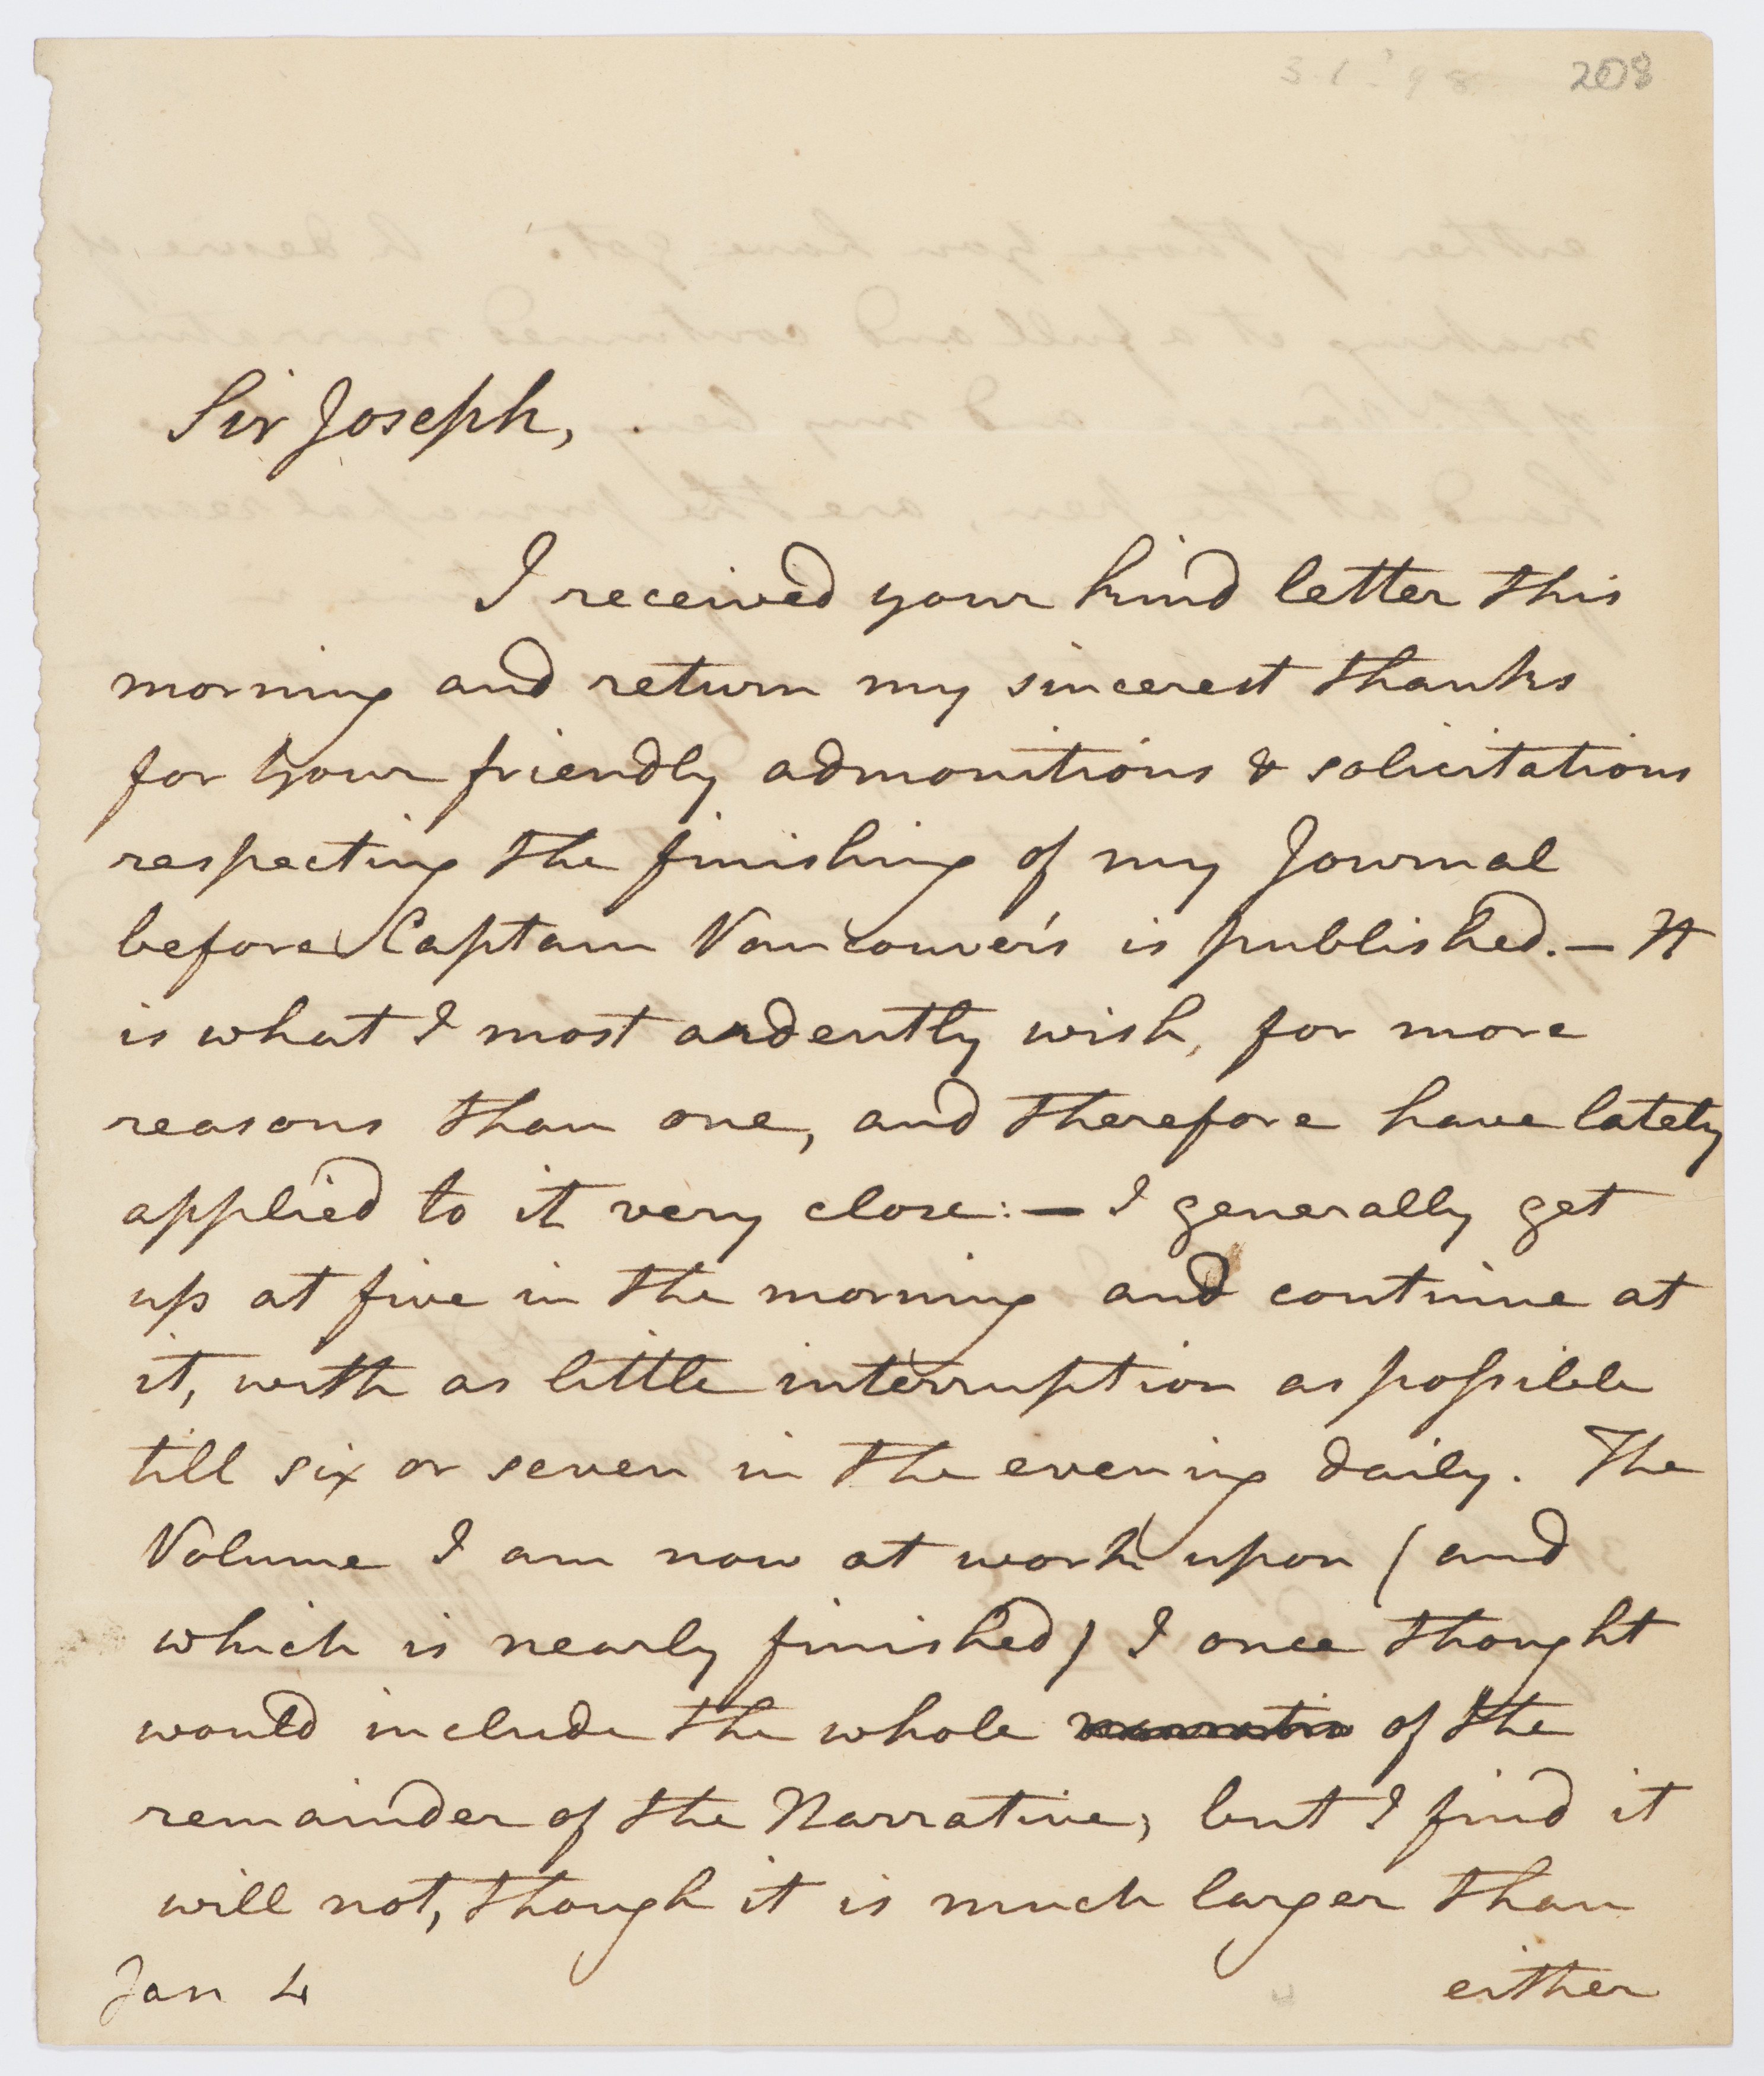 208
Sir Joseph,
I received your kind letter this
morning and return my sincerest thanks
for your friendly admonitions & solicitations
respecting the finishing of my Journal
before Captain Vancouver's is published. — It
is what I most ardently wish, for more
reasons than one, and therefore have lately
applied to it very close: — I generally get
up at five in the morning and continue at
it, with as little interruption as possible
till six or seven in the evening daily. The
Volume I am now at work upon (and
which is nearly finished) I once thought
would include the whole of the
remainder of the Narrative, but I find it
will not, though it is much larger than
Jan 4 either